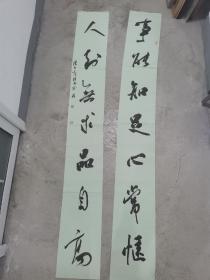 事能知足心常惬
人到无求品自高